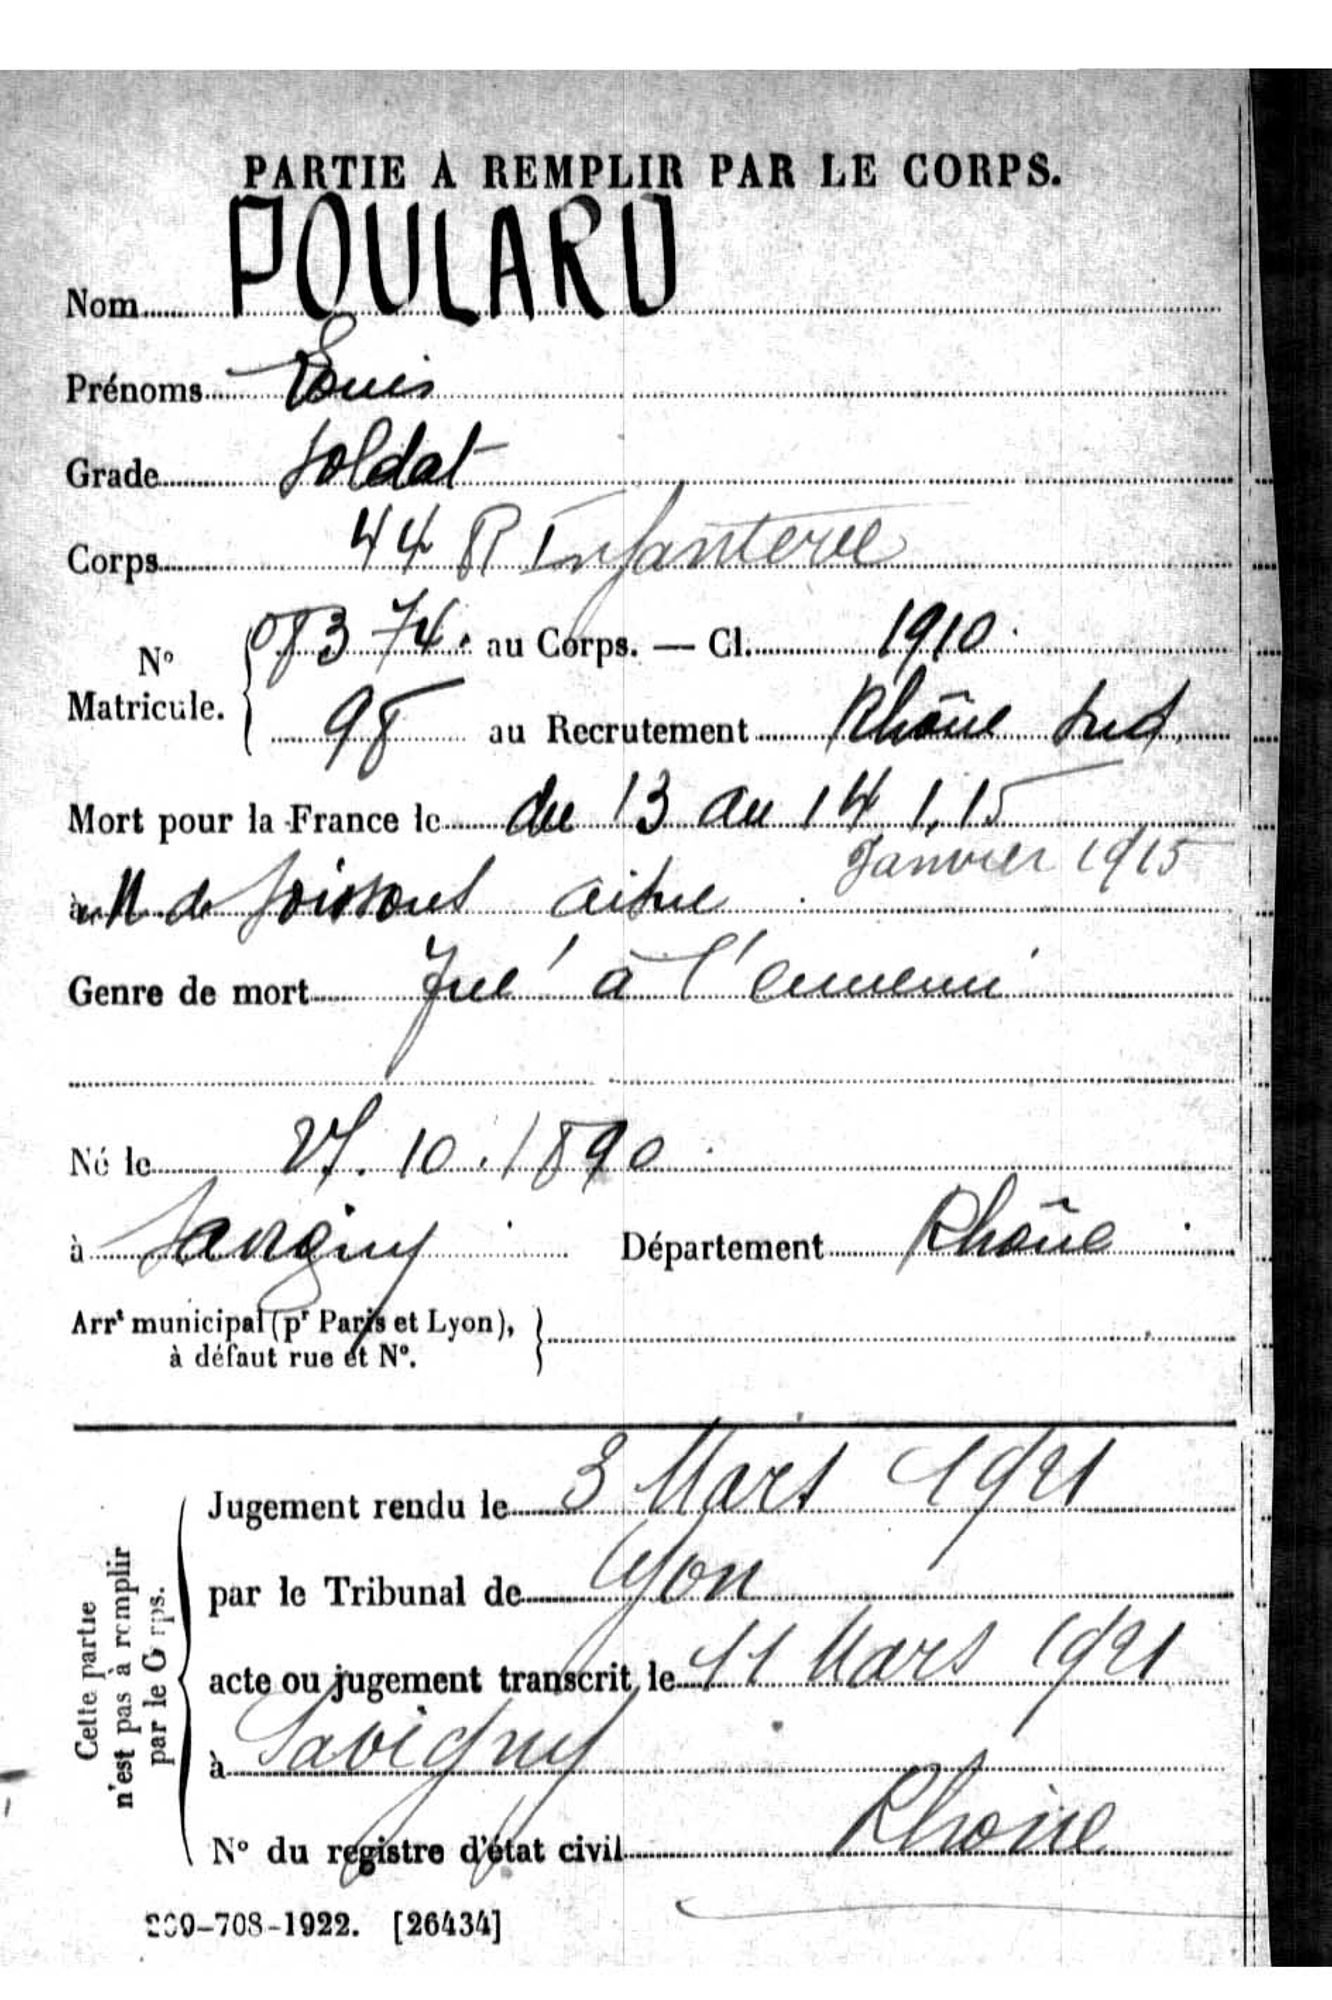 PARTIE À REMPLIR PAR LE CORPS.
Nom POULARD
Prénoms Louis
Grade Soldat
Corps 44 R Infanterie
N° Matricule. 08374. au Corps. — Cl. 1910
98 au Recrutement Rhône Sud
Mort pour la France le du 13 au 14 1.15
Janvier 1915
à N. de Soissons Aisne
Genre de mort Tué à l'ennemi
Né le 27.10.1890
à Département Rhône
Arrt municipal (pr Paris et Lyon),
à défaut rue et N°.
Cette partie
n'est pas à remplir
par le Corps.
Jugement rendu le 3 Mars 1921
par le Tribunal de Lyon
acte ou jugement transcrit le 11 Mars 1921
à Savigny
Rhône
N° du registre d'état civil
-708-1922. [26434]